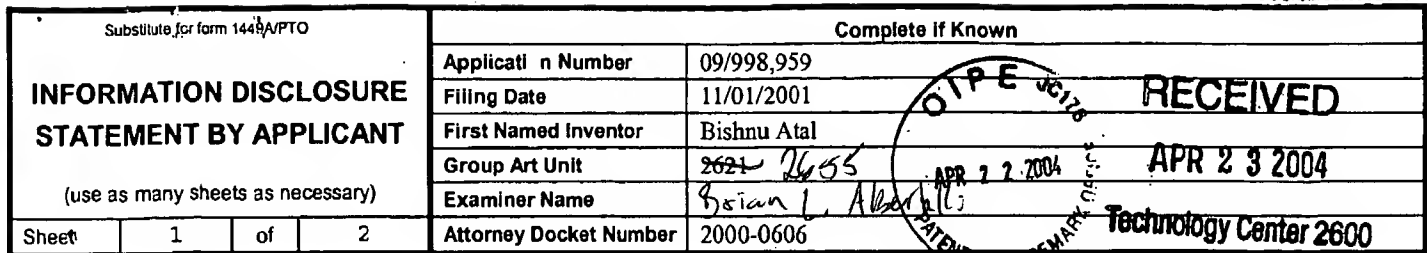 Substitute for form 1449A/PTO
INFORMATION DISCLOSURE
STATEMENT BY APPLICANT
(use as many sheets as necessary)
Sheet 1 of 2
Complete if Known
Applicati n Number 09/998,959
Filing Date 11/01/2001
First Named Inventor Bishnu Atal
Group Art Unit 2621 2655
Examiner Name Brian L.
Attorney Docket Number 2000-0606
OIPE JC175
APR 2 2 2004
RECEIVED
APR 2 3 2004
Technology Center 2600